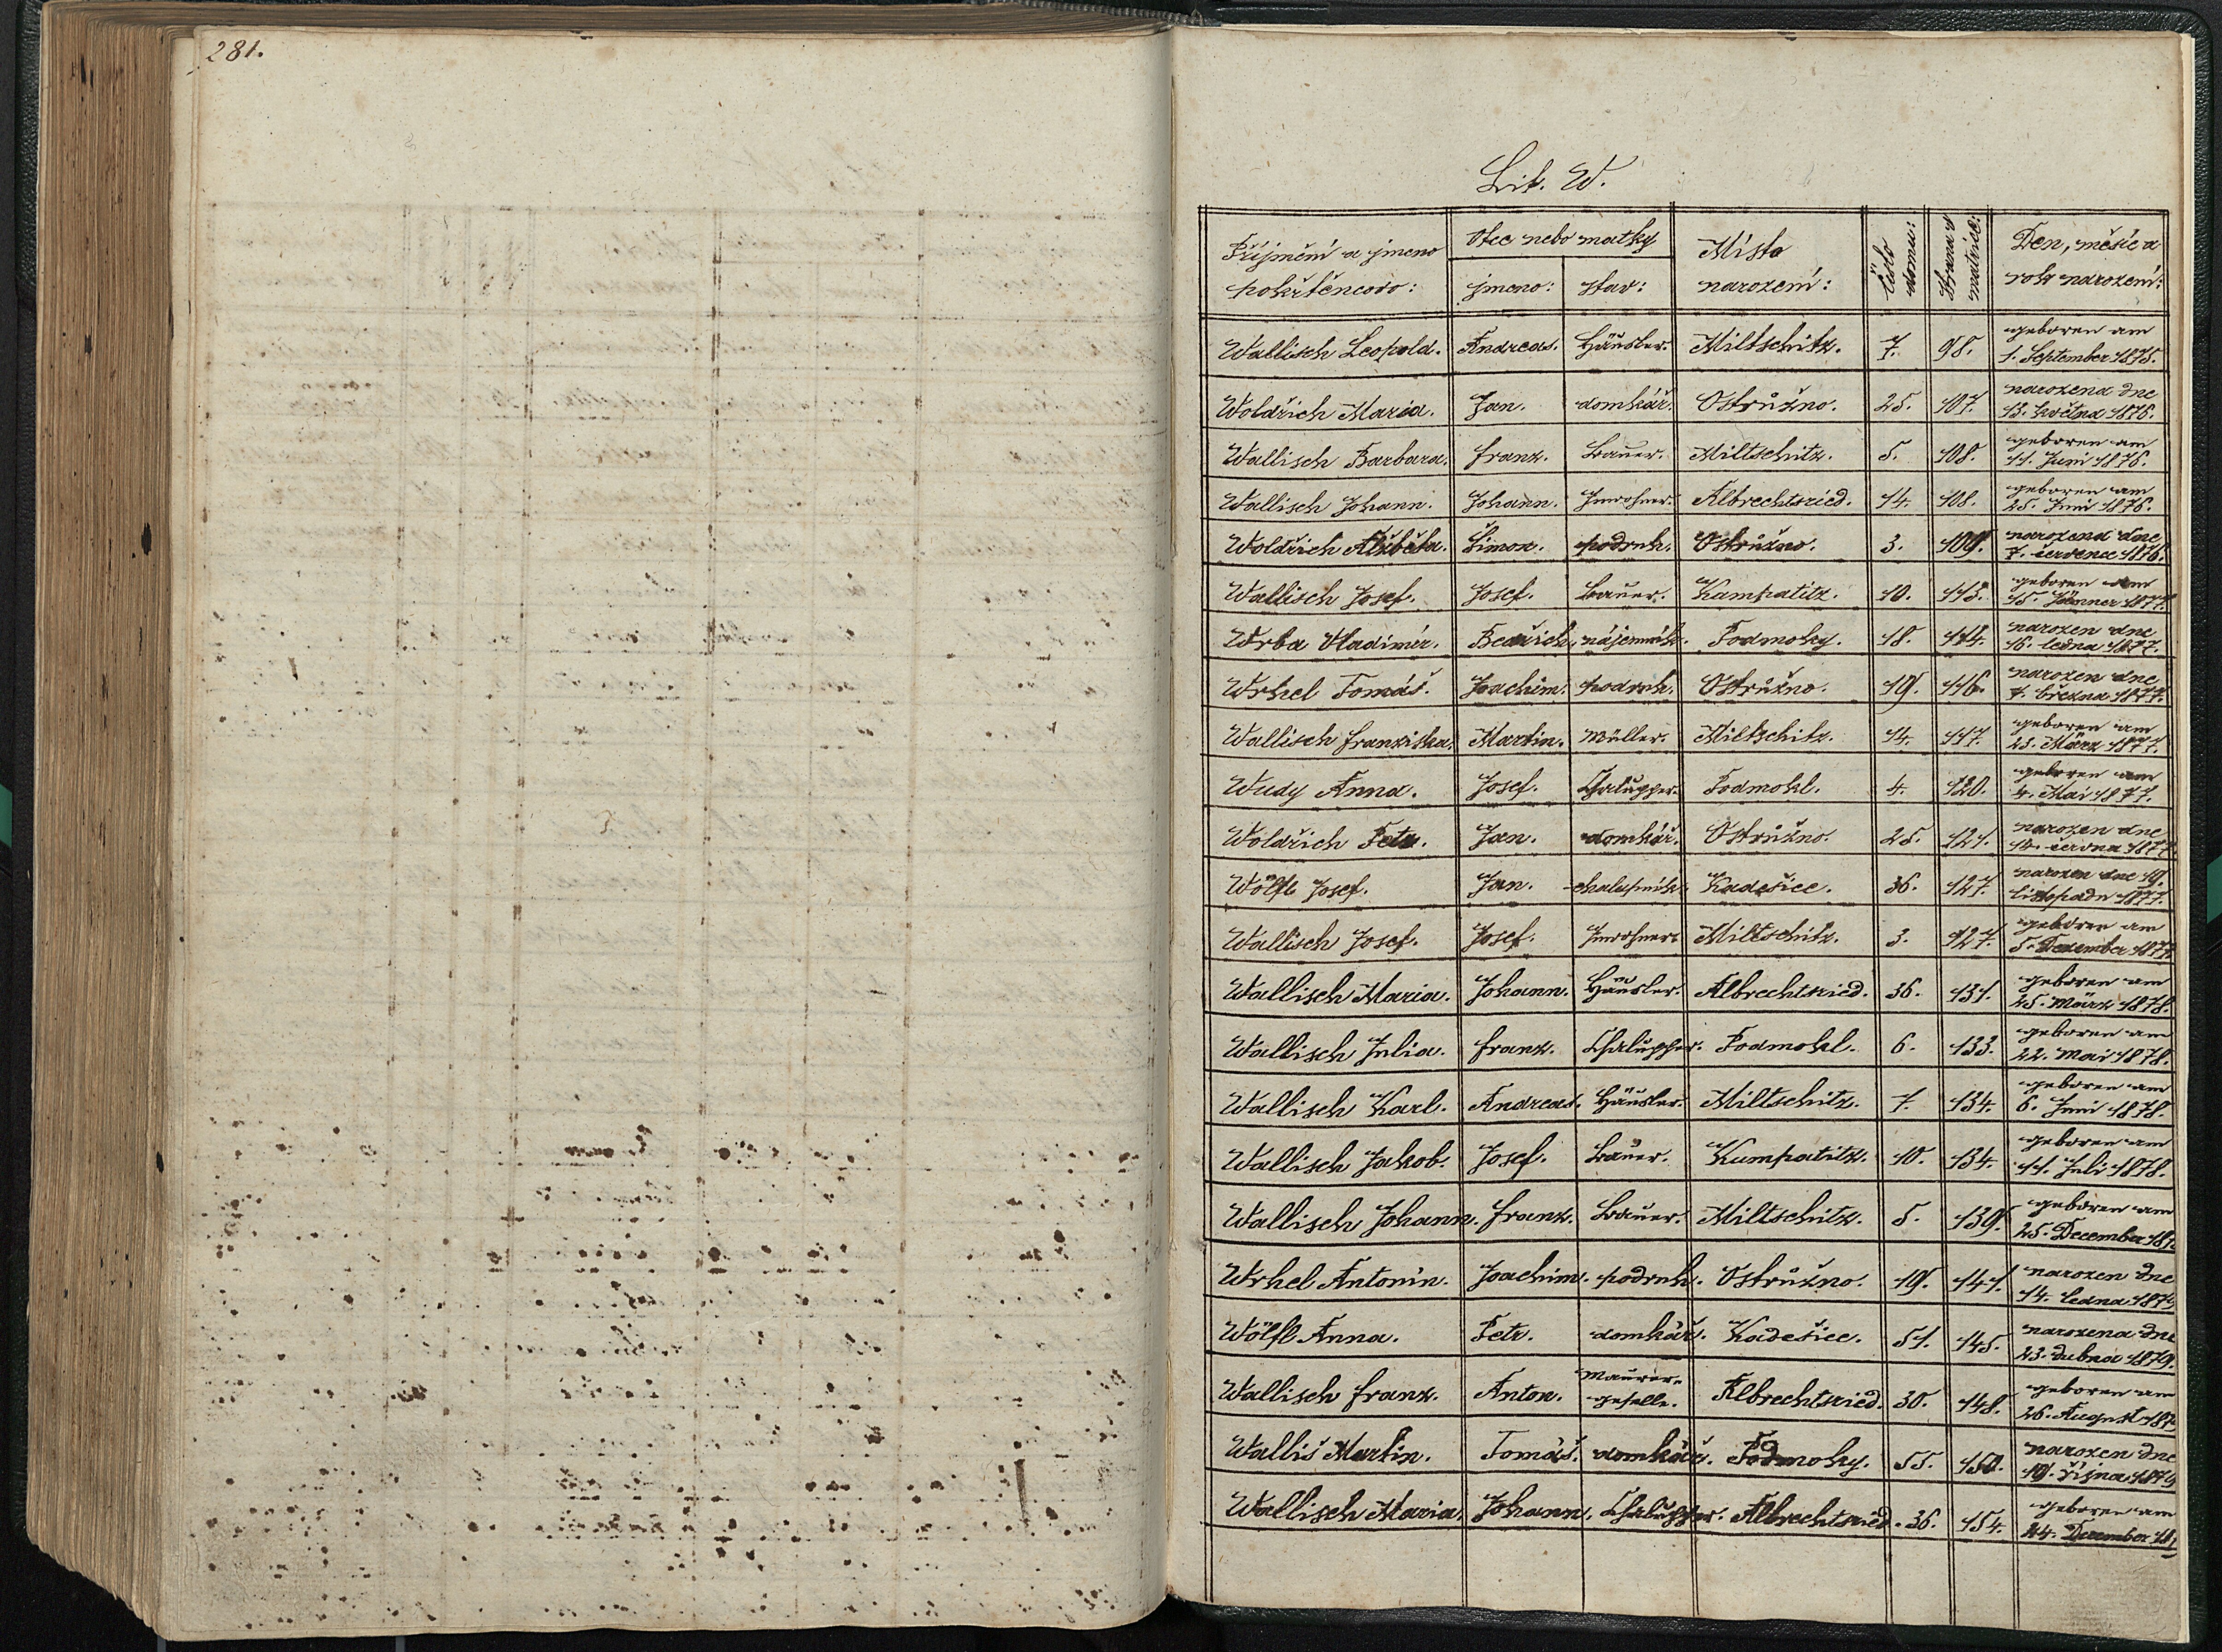 281.
Lit. W.
Příjmění a jmeno pokřtěncovo: Otec nebo matky jmeno: stav: Místo narození: Číslo domu: Strana v matrice: Den, měsíc a rok narození:
Wallisch Leopold. Andreas. Häusler. Miltschitz. 7. 98. geboren am
1. September 1875.
Woldřich Maria. Jan. domkář. Ostružno. 25. 107. narozena dne
13. května 1876.
Wallisch Barbara. Franz. Bauer. Miltschitz. 5. 108. geboren am
11. Juni 1876.
Wallisch Johann. Johann. Inwohner. Albrechtsried. 14. 108. geboren am
25. Juni 1876.
Woldřich Alžběta. Šimon. podruh. Ostružno. 3. 109. narozena dne
7. července 1876.
Wallisch Josef. Josef. Bauer. Kumpatitz. 10. 113. geboren am
15. Jänner 1877.
Wrba Vladimír. Bedřich. nájemník. Podmoky. 18. 114. narozen dne
16. ledna 1877.
Wrhel Tomáš. Joachim. podruh. Ostružno. 19. 116. narozen dne
7. března 1877.
Wallisch Franziska. Martin. Müller. Miltschitz. 14. 117. geboren am
23. März 1877.
Wudy Anna. Josef. Chalupper. Podmokl. 4. 120. geboren am
4. Mai 1877.
Woldřich Petr. Jan. domkář. Ostružno. 25. 121. narozen dne
června 1877.
Wölfl Josef. Jan. chalupník. Kadešice. 36. 127. narozen dne 19.
listopadu 1877.
Wallisch Josef. Josef. Inwohner. Miltschitz. 3. 127. geboren am
5. Dezember 1877.
Wallisch Maria. Johann. Häusler. Albrechtsried. 36. 131. geboren am
25. März 1878.
Wallisch Julia. Franz. Chalupper. Podmokl. 6. 133. geboren am
22. Mai 1878.
Wallisch Karl. Andreas. Häusler. Miltschitz. 7. 134. geboren am
6. Juni 1878.
Wallisch Jakob. Josef. Bauer. Kumpatitz. 10. 134. geboren am
11. Juli 1878.
Wallisch Johann. Franz. Bauer. Miltschitz. 5. 139. geboren am
25. December 187
Wrhel Antonín. Joachim. podruh. Ostružno. 19. 141. narozen dne
14. ledna 1879
Wölfl Anna. Petr. domkář. Kadešice. 51. 145. narozena dne
23. dubna 1879.
Wallisch Franz. Anton. Maurer-
geselle. Albrechtsried. 30. 148. geboren am
26. August 187
Walliš Martin. Tomáš. domkář. Podmoky. 55. 150. narozen dne
19. října 1879
Wallisch Maria. Johann. Chalupper. Albrechtsried. 36. 154. geboren am
24. December 18